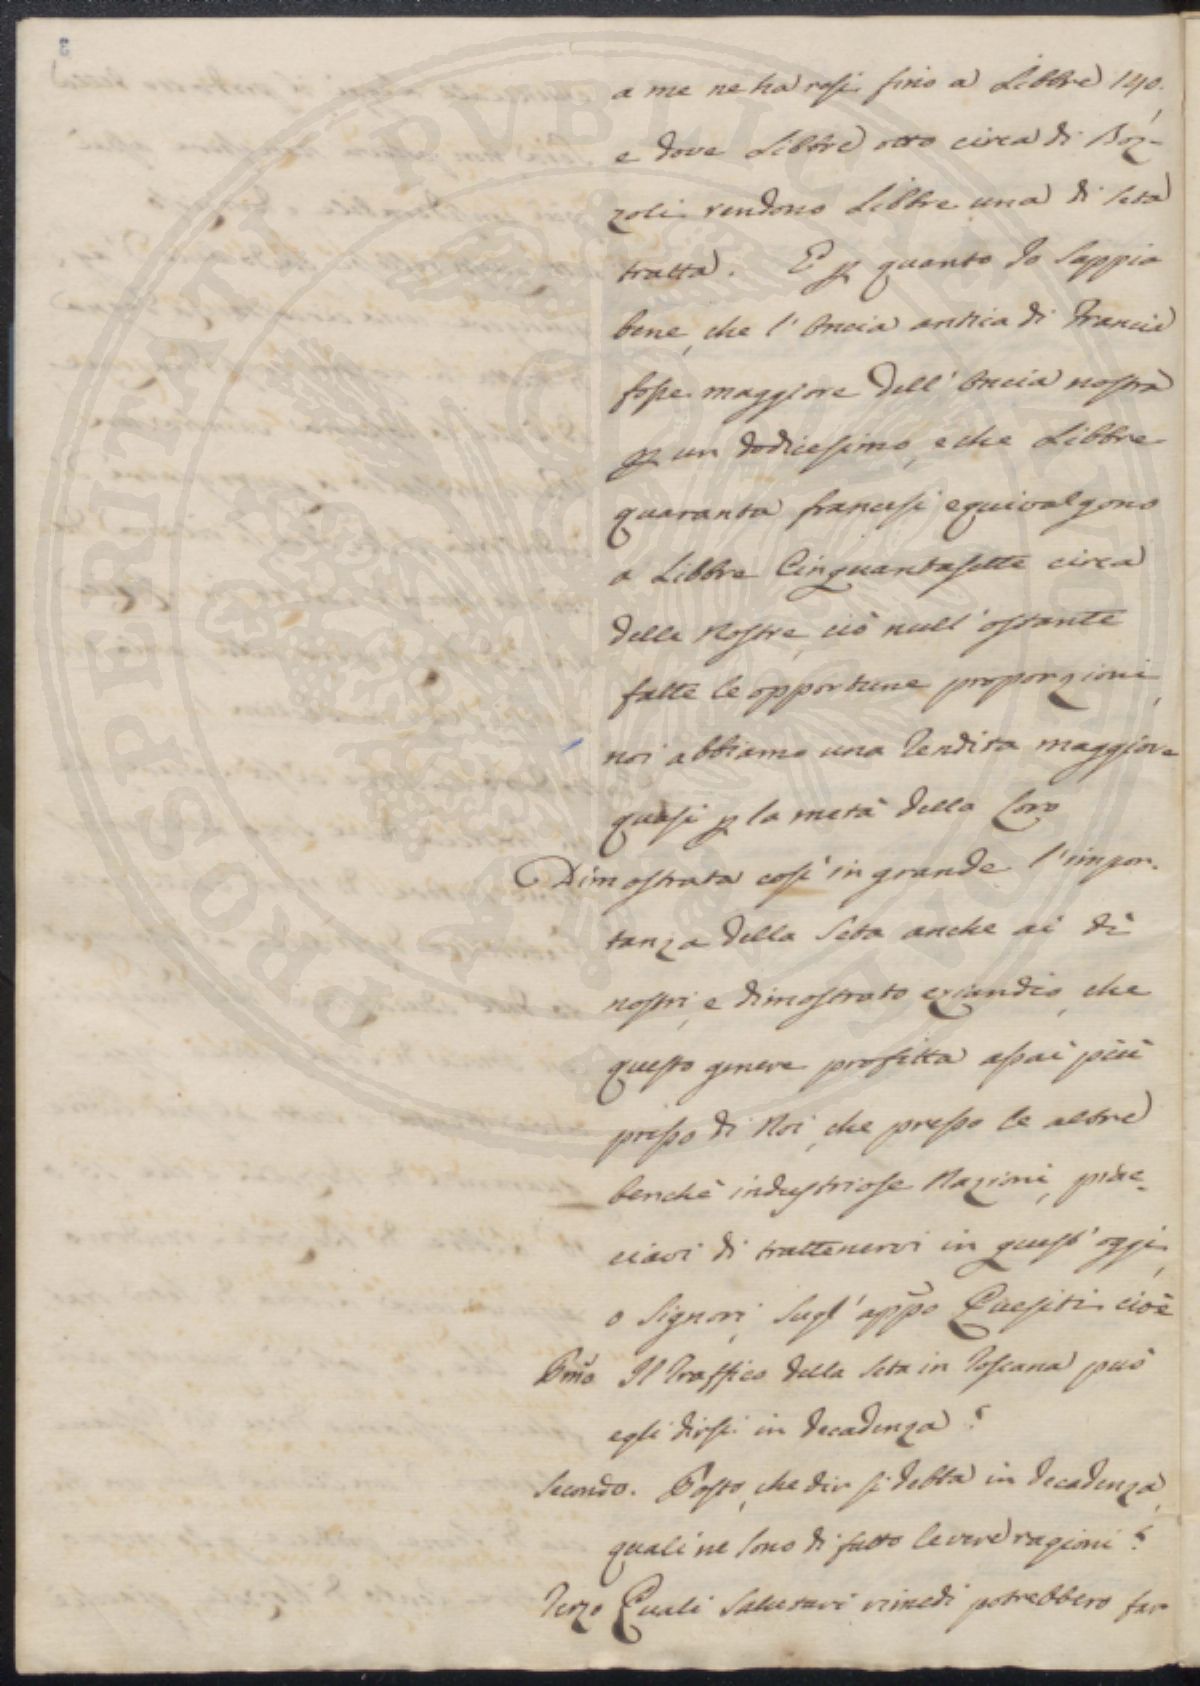 a me ne ha resi fino a Libbre 140.,
e dove Libbre otto circa di Boz-
zoli rendono Libbre una di seta
tratta. E p quanto Io sappia
bene, che l'Oncia antica di Francia
fosse maggiore dell'Oncia nostra
p un dodicesimo, e che Libbre
quaranta francesi equivalgono
a Libbre Cinquantasette circa
delle Nostre, ciò null'ostante
fatte le opportune proporzioni,
noi abbiamo una Rendita maggiore
quasi p la metà della Loro
Dimostrata così in grande l'impor-
tanza della Seta anche ai dì
nostri, e dimostrato eziandio, che
questo genere profitta assai più
presso di Noi, che presso le altre
benchè industriose Nazioni, piac-
ciavi di trattenervi in quest'oggi,
o Signori, sugl'apppo Quesiti cioè
Pmo Il Traffico della Seta in Toscana può
egli dirsi in decadenza?
Secondo. Posto, che dir si debba in decadenza,
quali ne sono di fatto le vere ragioni?
Terzo Quali salutari rimedi potrebbero far
3
PROSPERITATI PUBLICAE